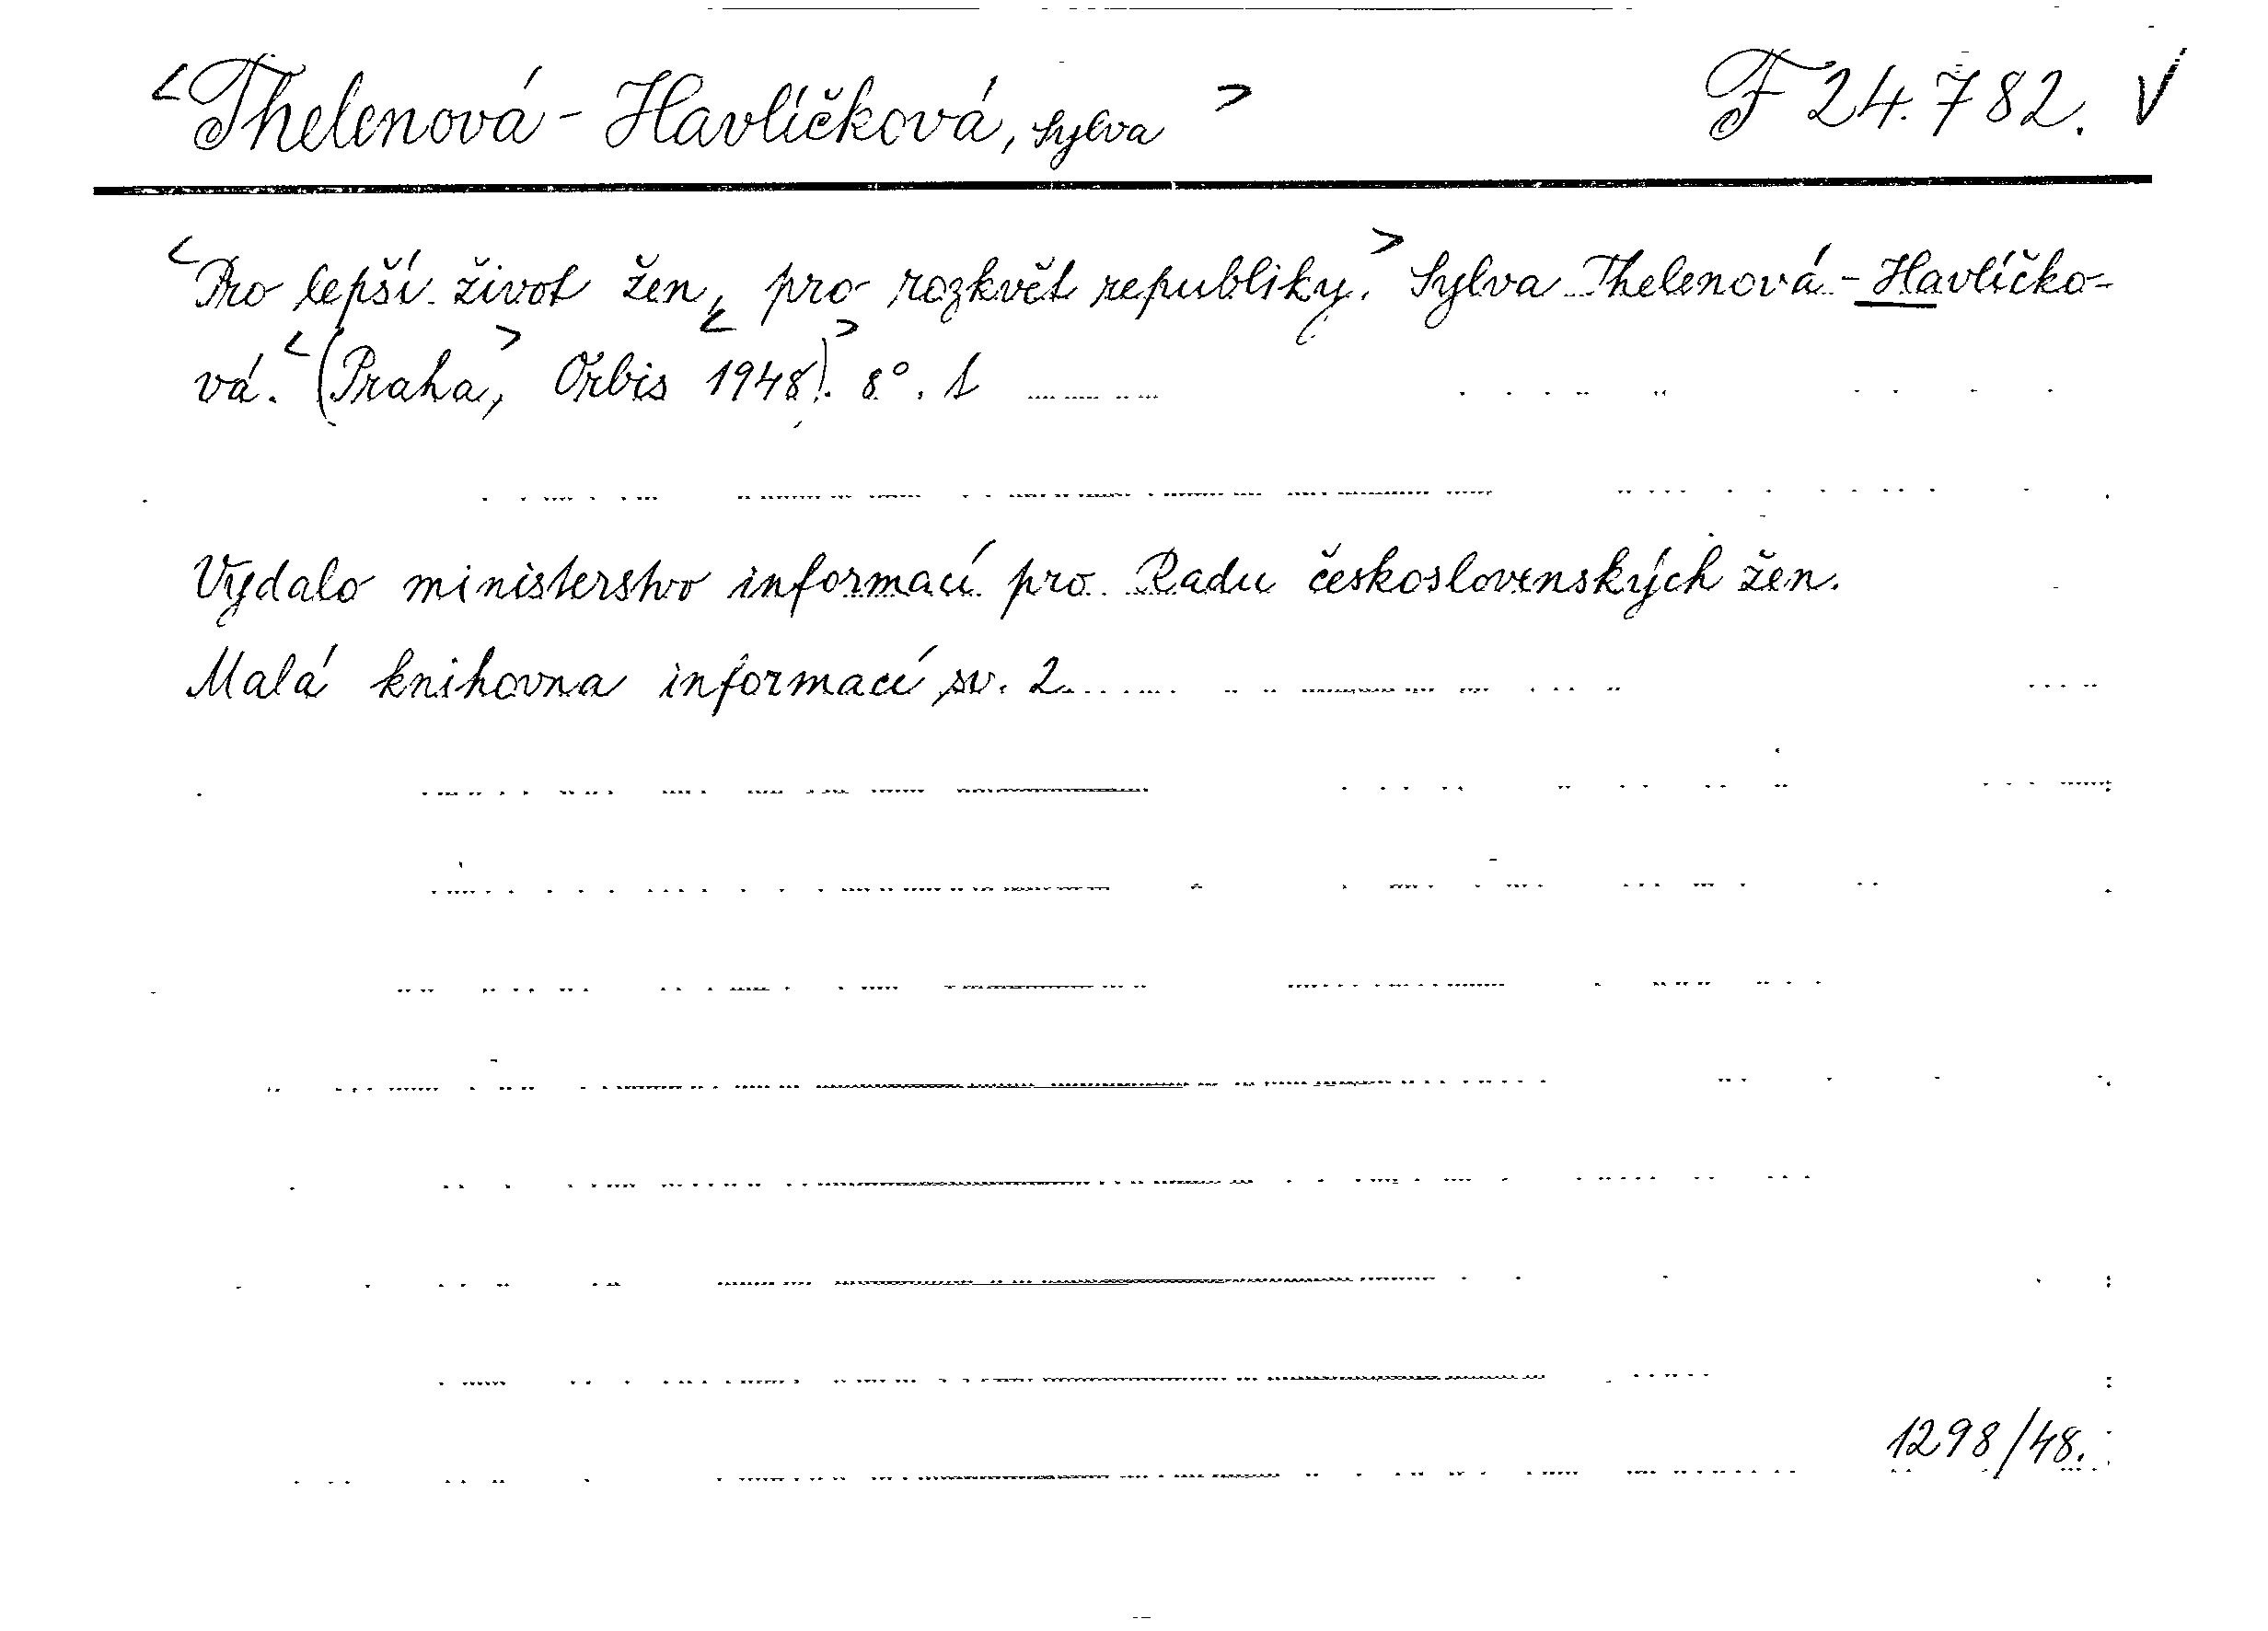 <Thelenová - Havlíčková, Sylva> F 24.782. V
<Pro lepší život žen, pro rozkvět republiky.> Sylva Thelenová - Havlíčko-
vá. <(Praha,> Orbis <1948).> 8°. 1
Vydalo ministerstvo informací pro Radu československých žen.
Malá knihovna informací sv. 2.
1298/48.